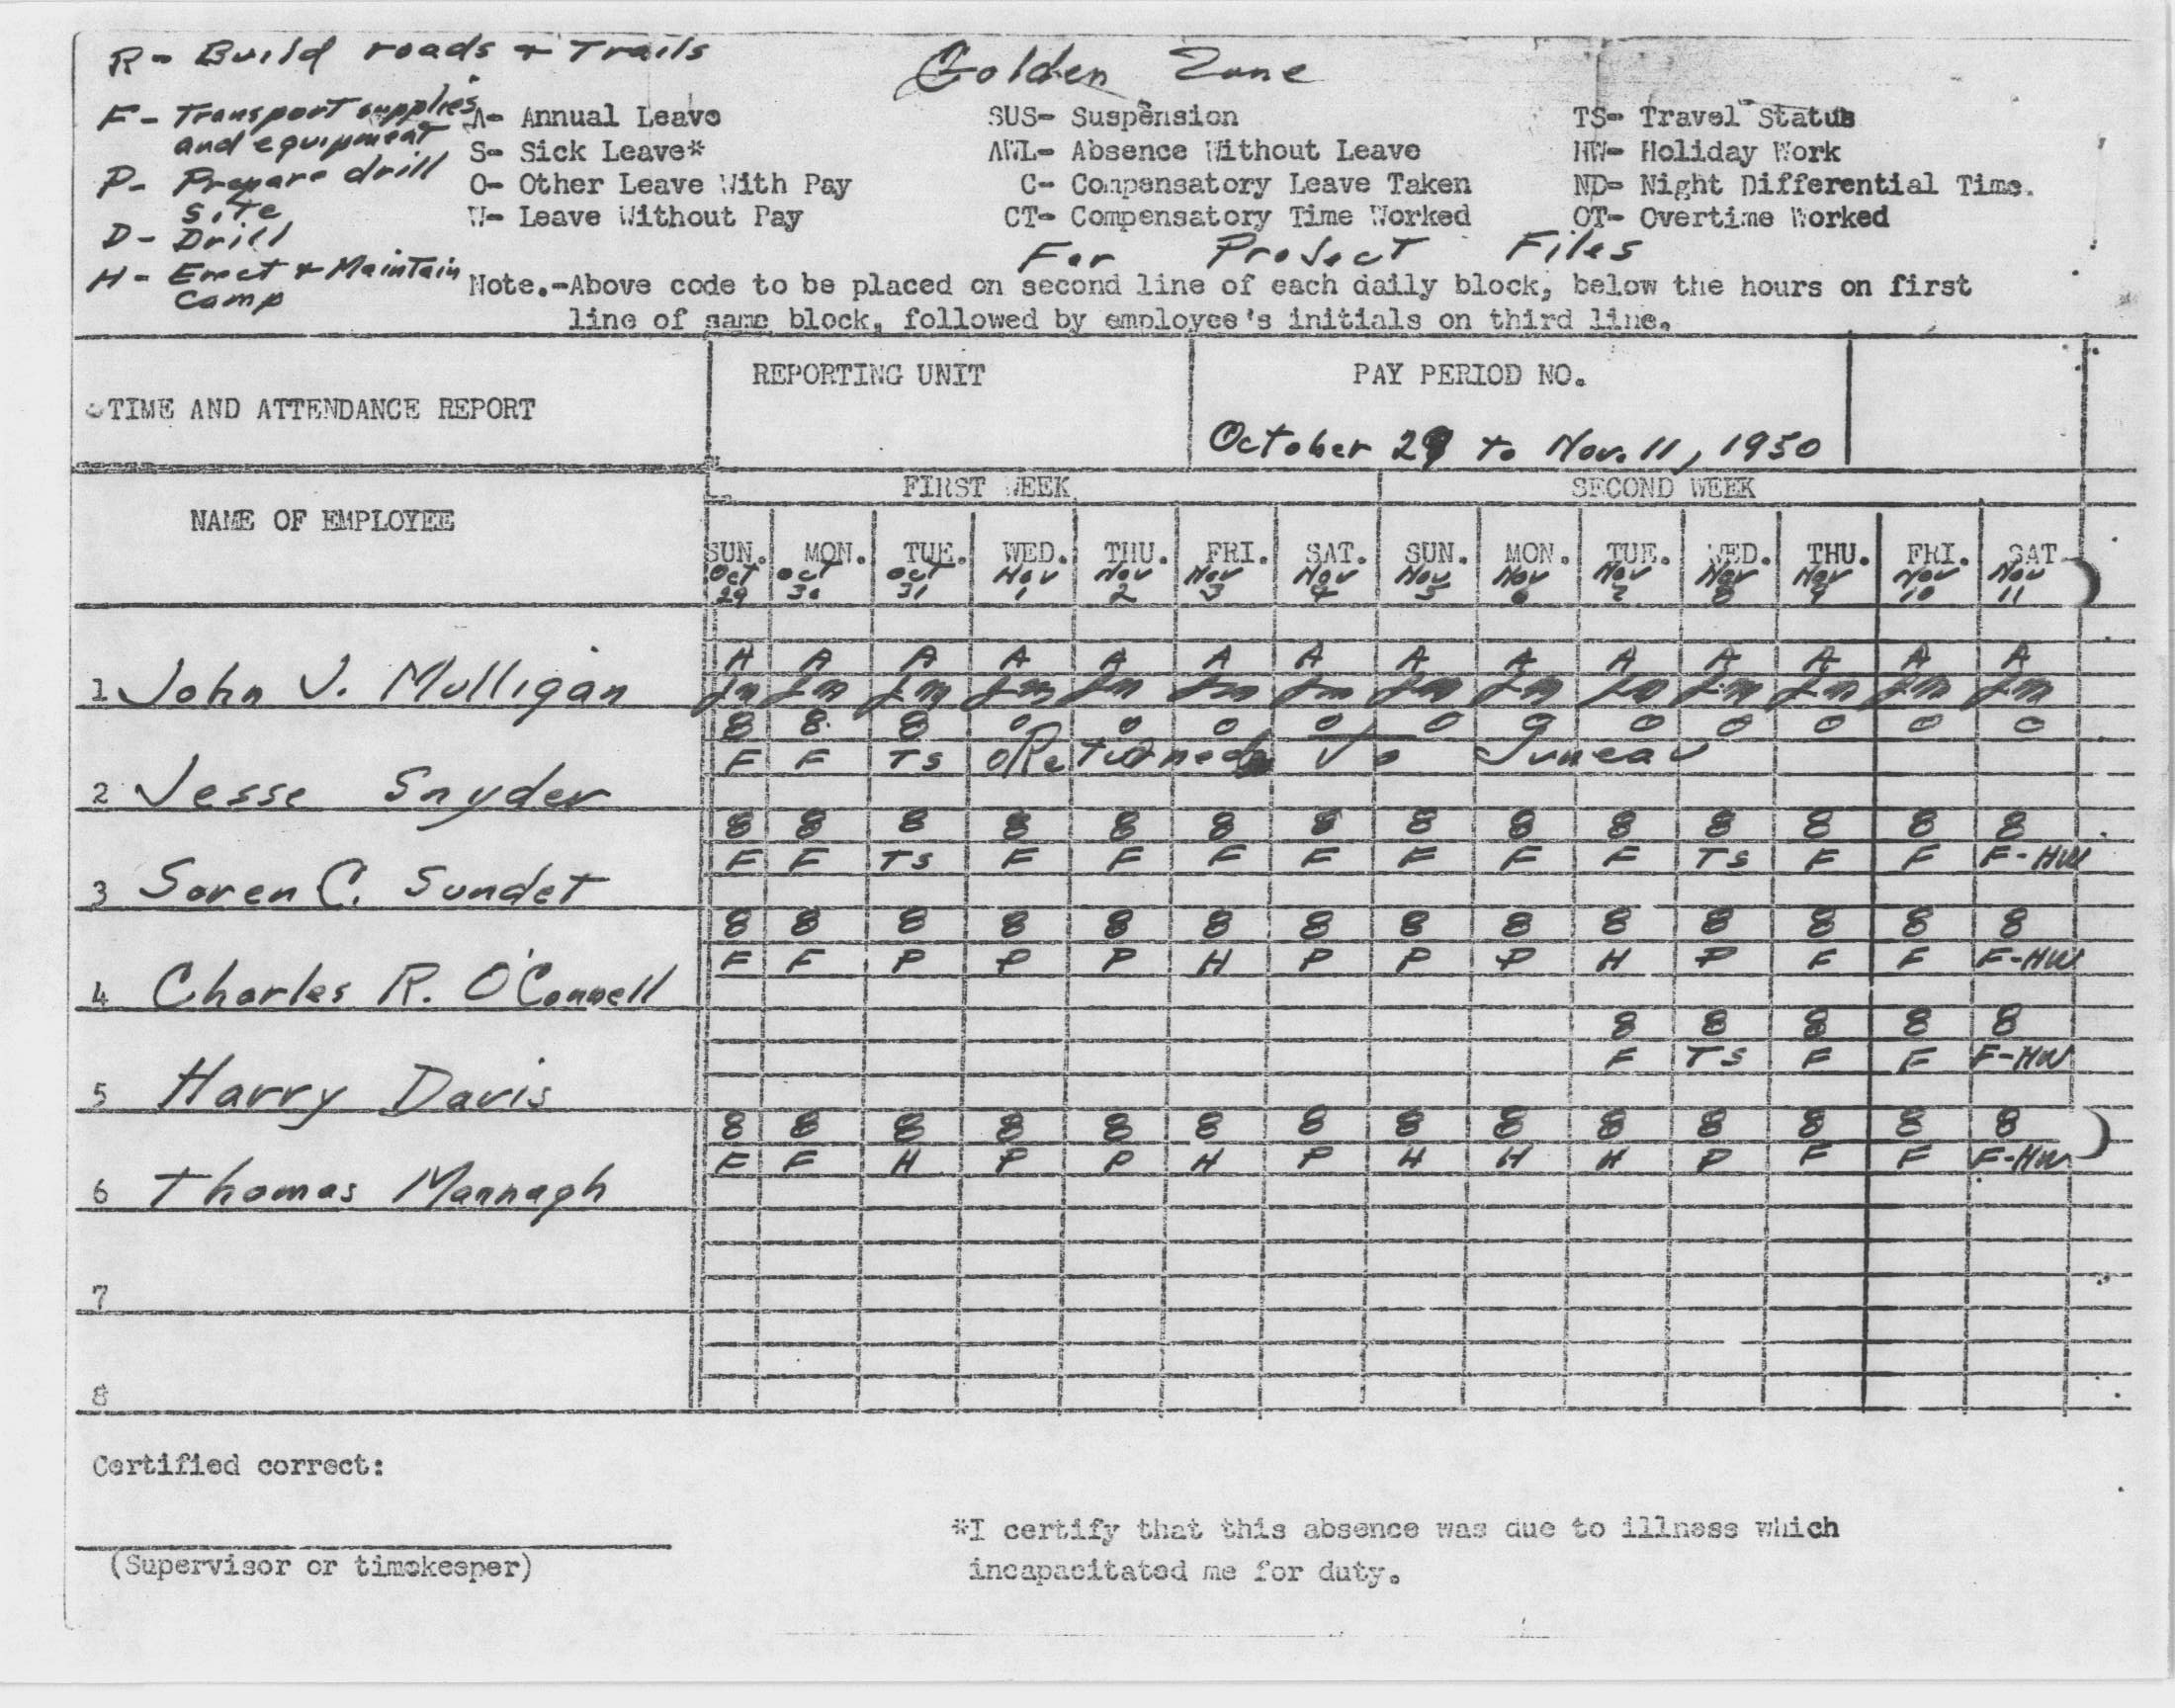 R- Build roads & Trails
Golden Zone
F- Transport supplies and equipment
P- Prepare drill site
D- Drill
H- Erect & Maintain Camp
A- Annual Leave
S- Sick Leave*
O- Other Leave With Pay
W- Leave Without Pay
SUS- Suspension
AWL- Absence Without Leave
C- Compensatory Leave Taken
CT- Compensatory Time Worked
TS- Travel Status
HW- Holiday Work
ND- Night Differential Time.
OT- Overtime Worked
For Project Files
Note.-Above code to be placed on second line of each daily block, below the hours on first
line of same block, followed by employee's initials on third line.
TIME AND ATTENDANCE REPORT
REPORTING UNIT
PAY PERIOD NO.
October 29 to Nov. 11, 1950
NAME OF EMPLOYEE
FIRST WEEK SECOND WEEK
SUN. MON. TUE. WED. THU. FRI. SAT. SUN. MON. TUE. WED. THU. FRI. SAT
Oct Oct Oct Nov Nov Nov Nov Nov Nov Nov Nov Nov Nov Nov
29 30 31 1 2 3 4 5 6 7 8 9 10 11
H A A A A A A A A A A A A A
1 John J. Mulligan Jm Jm Jm Jm Jm Jm Jm Jm Jm Jm Jm Jm Jm Jm
8 8 8 0 0 0 0 0 0 0 0 0 0 0
F F TS Returned To Juneau
2 Jesse Snyder
8 8 8 8 8 8 8 8 8 8 8 8 8 8
F F TS F F F F F F F TS F F F-HW
3 Soren C. Sundet
8 8 8 8 8 8 8 8 8 8 8 8 8 8
F F P P P H P P P H P F F F-HW
4 Charles R. O'Connell
8 8 8 8 8
F TS F F F-HW
5 Harry Davis
8 8 8 8 8 8 8 8 8 8 8 8 8 8
F F H P P H P H H H P F F F-HW
6 Thomas Mannagh
7
8
Certified correct:
(Supervisor or timekeeper)
*I certify that this absence was due to illness which
incapacitated me for duty.